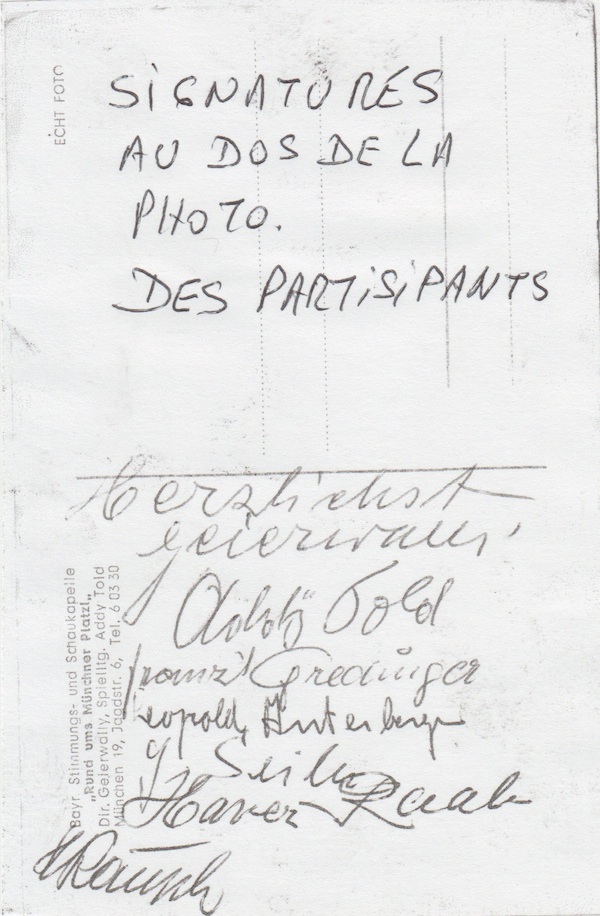 ECHT FOTO
SiGNATURES
AU DOS DE LA
PHOTO.
DES PARTiSiPANTS
Herzlichst
Geierwally
Addy Told
Franzl
Leopold
Seiler
Xaver Raab
Rausch
Bayr. Stimmungs- und Schaukapelle
„Rund ums Münchner Platzl„
Dir. Geierwally, Spielltg. Addy Told
München 19, Jagdstr. 6, Tel. 6 03 30